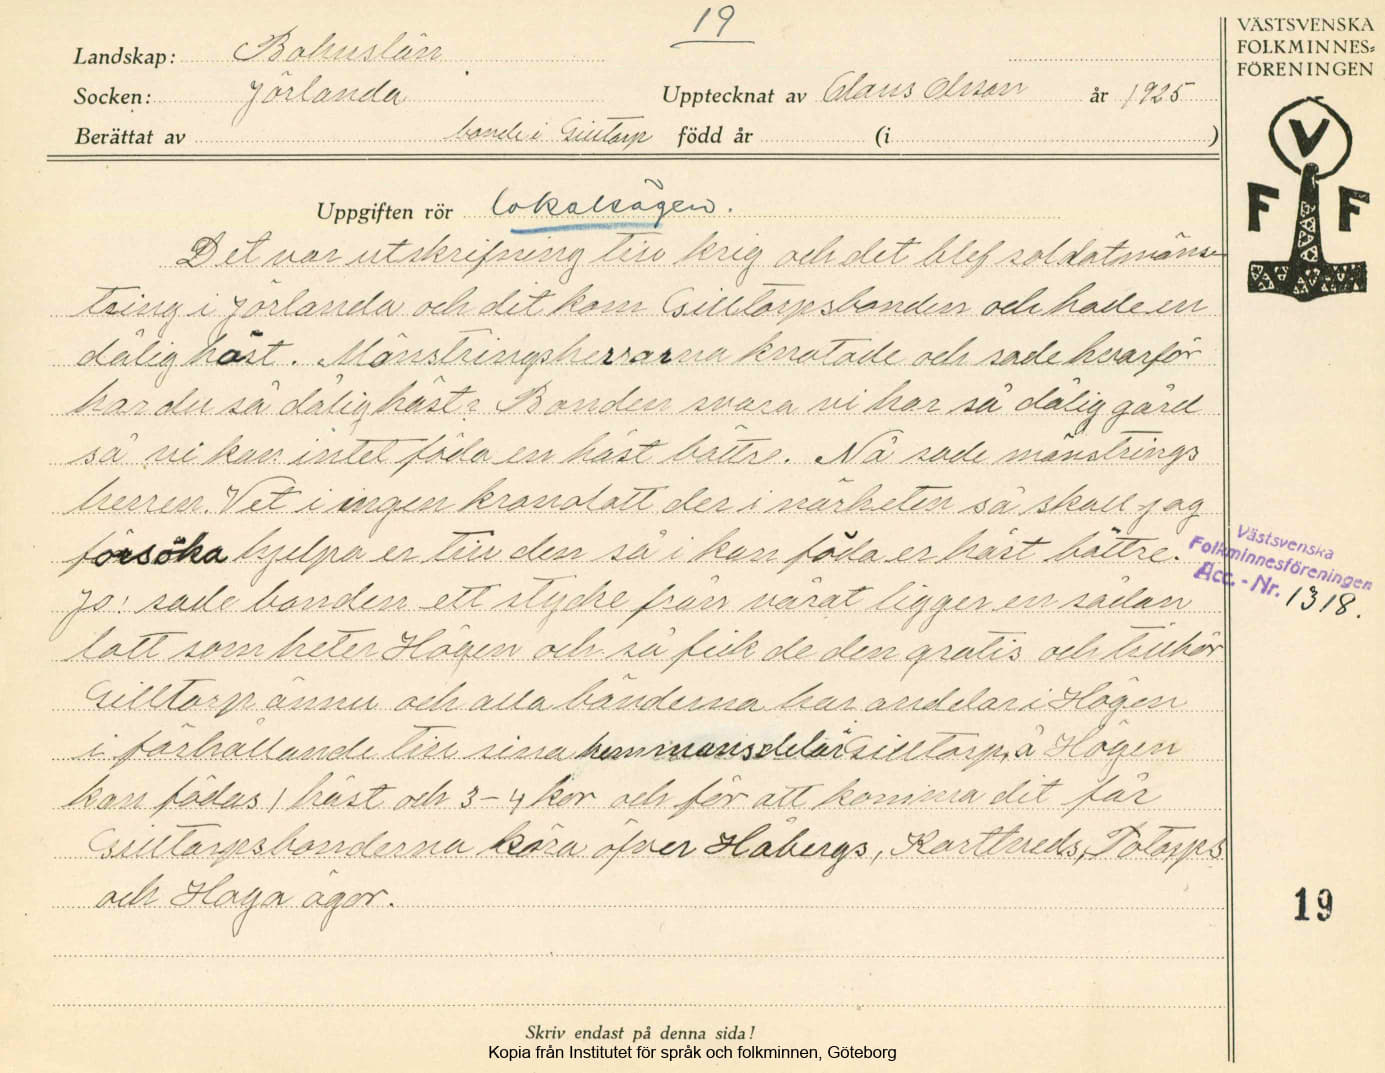 19
VÄSTSVENSKA
FOLKMINNES=
FÖRENINGEN
V
F F
Landskap: Bohuslän
Socken: Jörlanda Upptecknat av Claus Olsson år 1925
Berättat av bonde i Gilltorp född år (i )
Uppgiften rör lokalsägen.
Det var utskrifning till krig och det blef soldatmöns-
tring i Jörlanda och dit kom Gilltorpsbonden och hade en
dålig häst. Mönstringsherrarna knotade och sade hvarför
har du så dålig häst? Bonden svara vi har så dålig gård
så vi kan intet föda en häst bättre. Nå sade mönstrings
herren. Vet i ingen kronolatt der i närheten så skall jag
försöka hjelpa er till den så i kan föda er häst bättre.
Jo! sade bonden ett stycke från vårat ligger en sådan
lott som heter Högen och så fick de den gratis och tillhör
Gilltorp ännu och alla bönderna har andelar i Högen
i förhållande till sina hemmansdelar i Gilltorp, å Högen
kan födas 1 häst och 3–4 kor och för att komma dit får
Gilltorpsbonderna köra öfver Håbergs, Kartveds, Potorps
och Haga ägor.
Västsvenska
Folkminnesföreningen
Acc.-Nr. 1318.
19
Skriv endast på denna sida!
Kopia från Institutet för språk och folkminnen, Göteborg